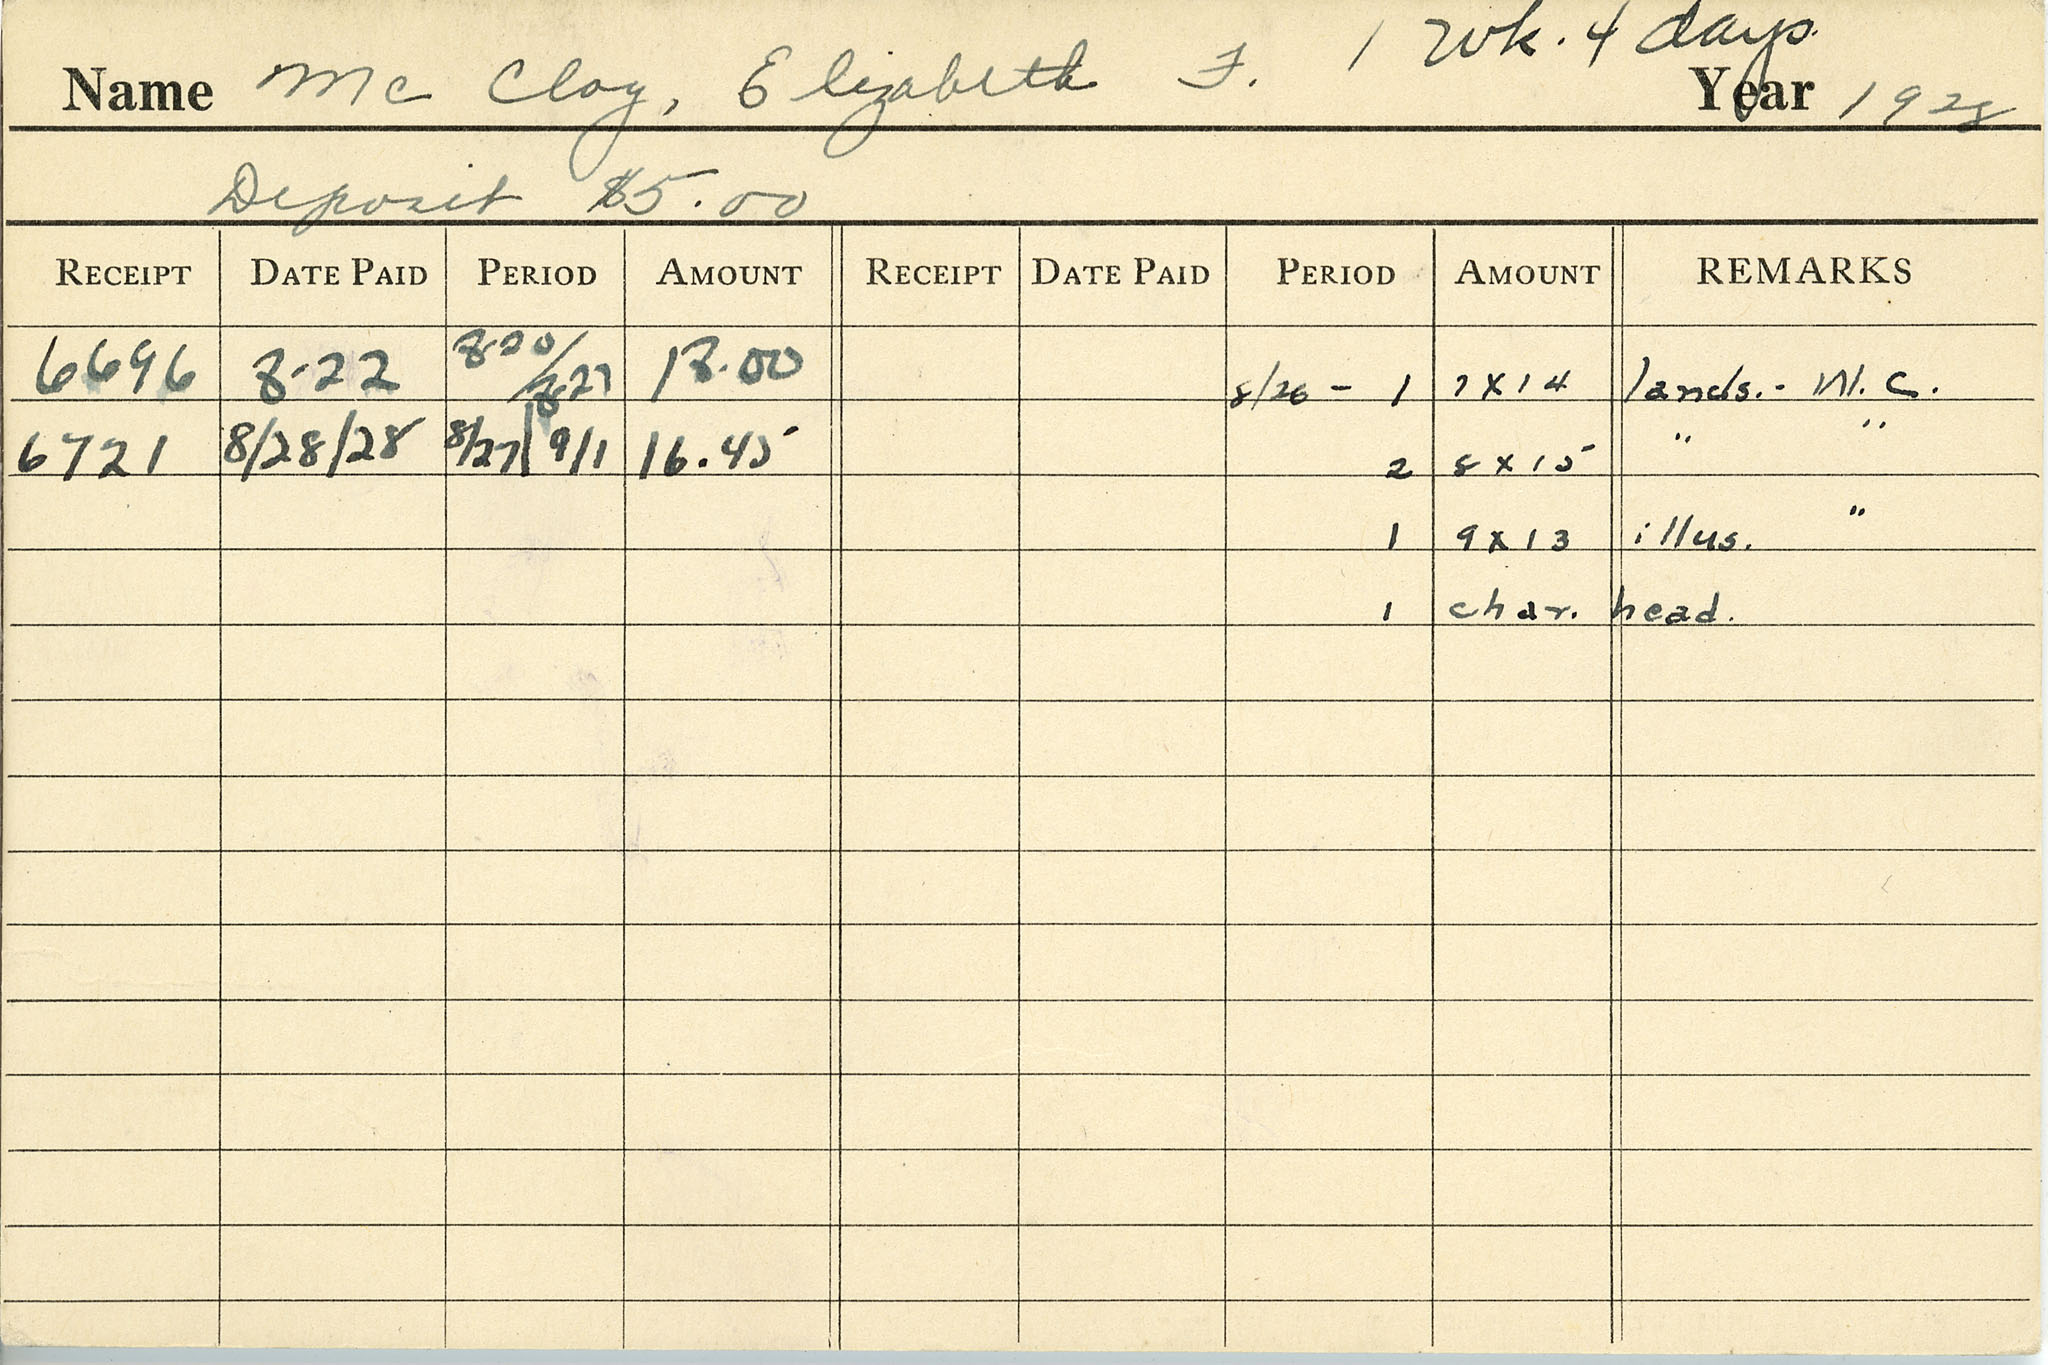 1 Wk. 4 days.
Name Mc Cloy, Elizabeth F. Year 1928
Deposit $5.00
RECEIPT DATE PAID PERIOD AMOUNT RECEIPT DATE PAID PERIOD AMOUNT REMARKS
6696 8-22 8-20/8-27 18.00 8/26 - 1 7x14 lands. - M. C.
6721 8/28/28 8/27/9/1 16.45 2 8x15 " "
1 9x13 illus. "
1 char. head.